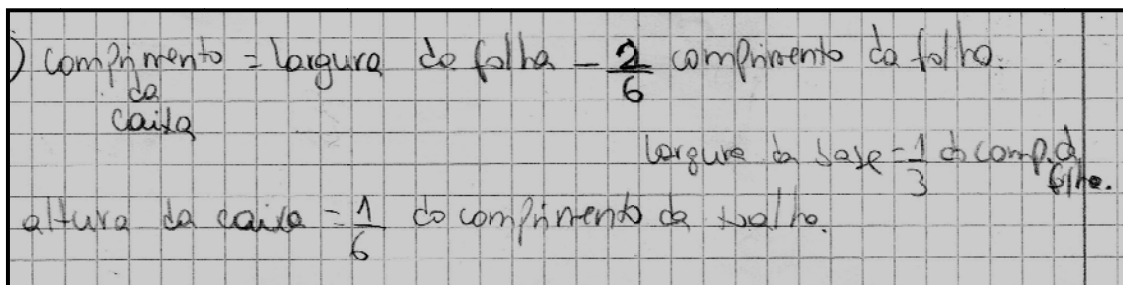 ) comprimento = largura da folha - 2/6 comprimento da folha.
da
caixa
largura da base = 1/3 do comp. da
folha.
altura da caixa = 1/6 do comprimento da folha.